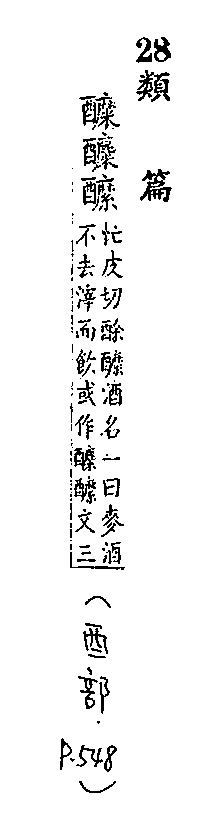 28 類篇
醾
忙皮切酴醾酒名一曰麥酒
不去滓而飲或作醾文三
(酉部.
P.548)